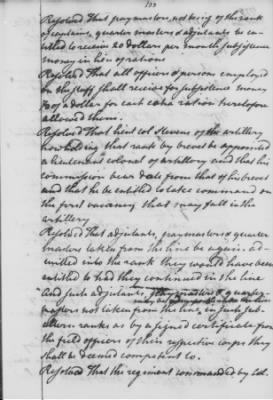 Resolved That paymasters, not being of the rank
of captains, quarter masters & adjutants be en-
titled to receive 20 Dollars per month subsistence
money in lieu of rations
Resolved That all officers & persons employed
on the staff shall receive for subsistence money
of a dollar for each extra ration heretofore
allowed them.
Resolved That Lieut col Stevens of the artillery
now holding that rank by brevet be appointed
a lieutenant colonel of artillery and that his
commission bear date from that of his brevet
and that he be entitled to take command on
the first vacancy that may fall in the
artillery
Resolved That adjutants, paymasters & quarter
masters taken from the line be again ad-
mitted into the rank they would have been
entitled to had they continued in the line
And such adjutants, paymasters & quarter-
masters not taken from the line, in such sub-
altern ranks as by a signed certificate from
the field officers of their respective corps they
shall be deemed competent to.
Resolved That the regiment commanded by Col.